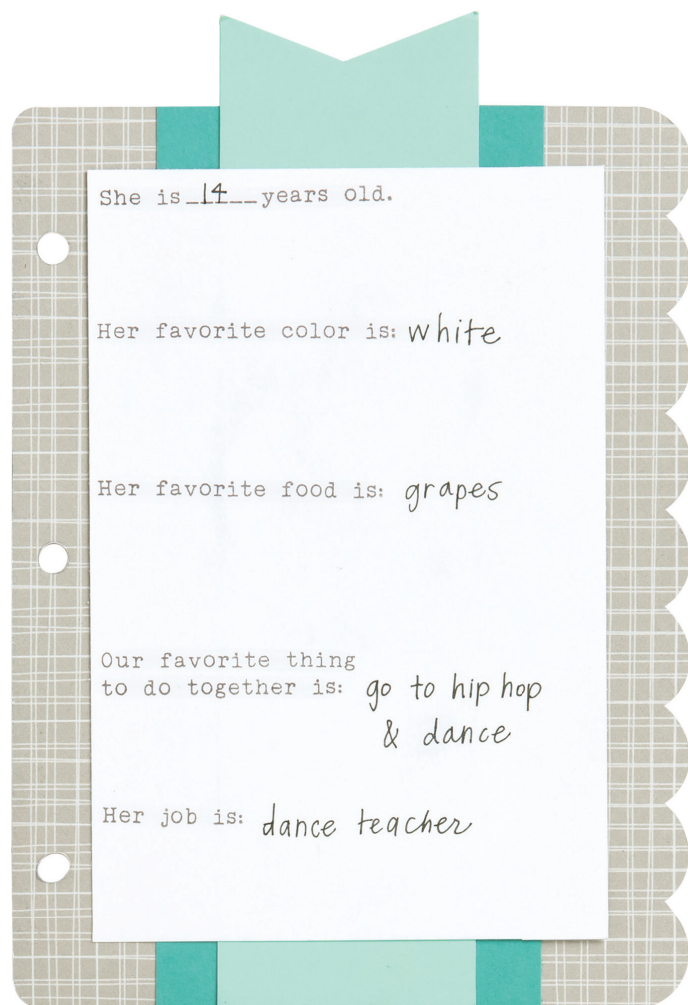 She is 14 years old.
Her favorite color is: white
Her favorite food is: grapes
Our favorite thing
to do together is: go to hip hop
& dance
Her job is: dance teacher